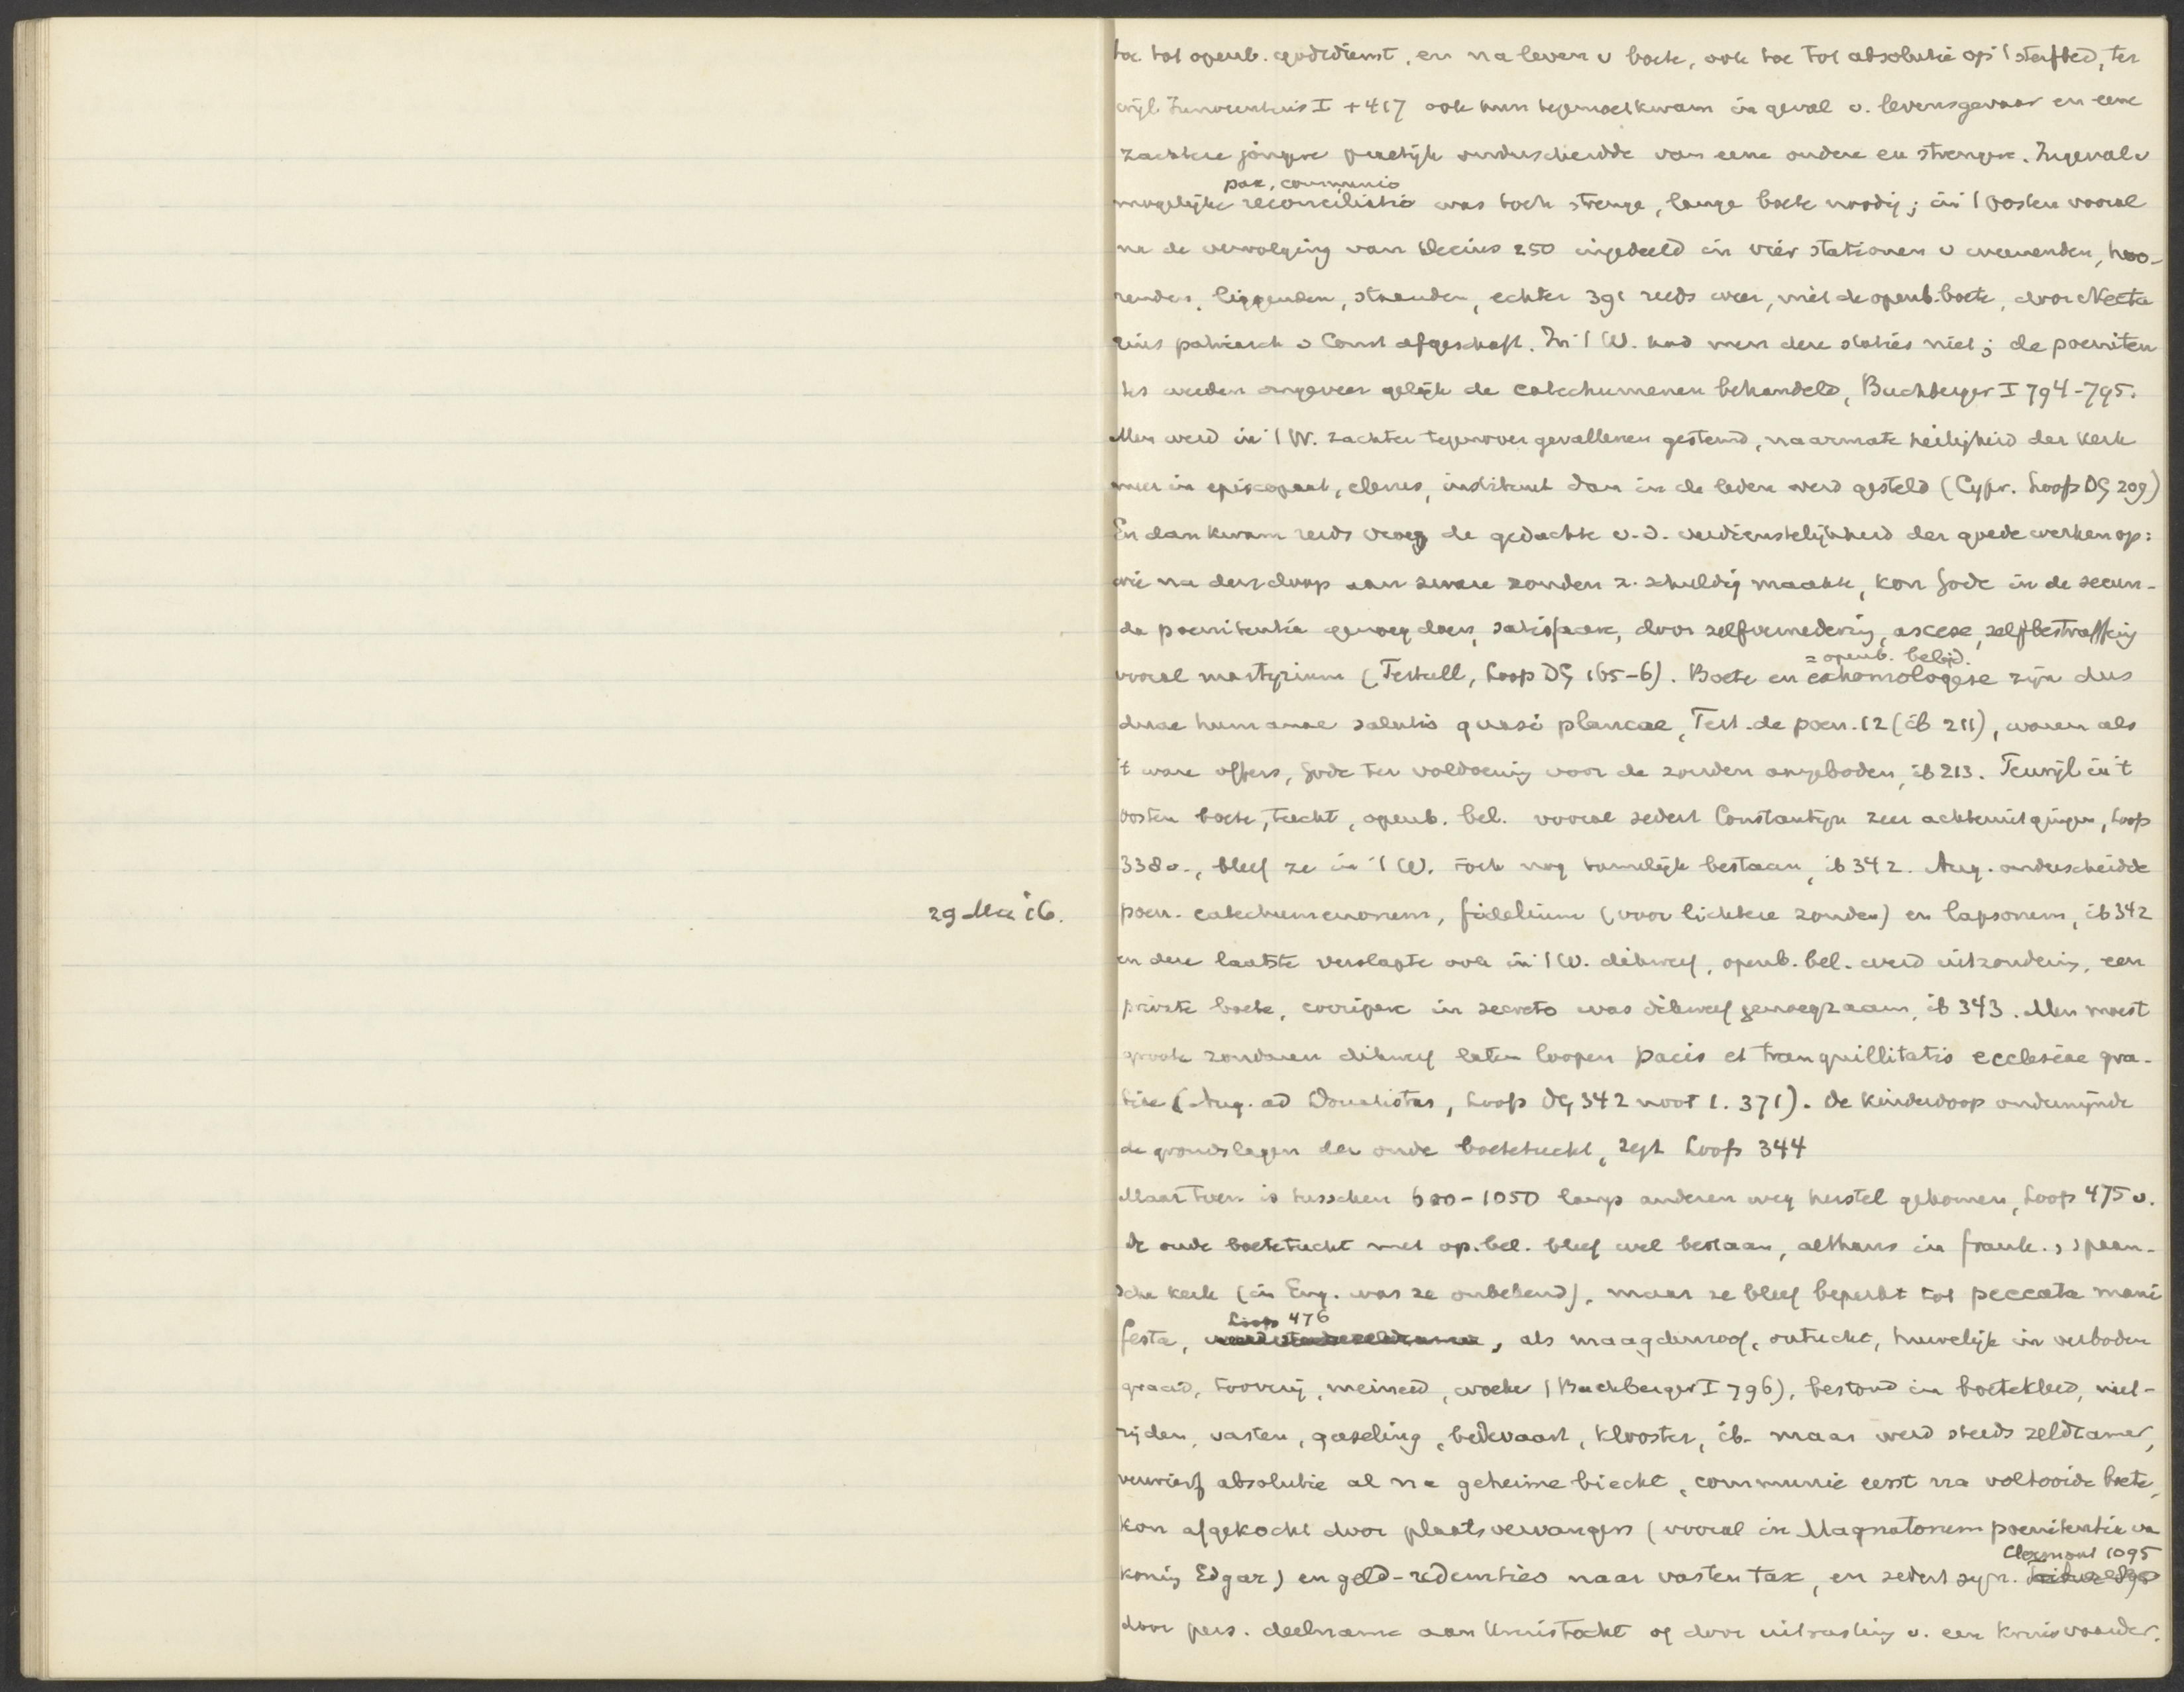 toe tot openb. godsdienst, en na leven v boete, ook toe tot absolutie op 't sterfbed, ter
wijl Innocentius I +417 ook hun tegemoetkwam in geval v. levensgevaar en eene
zachtere jongere practijk onderscheidde van eene oudere en strengere. Ingeval v
pax, communio
mogelijke reconciliatio was toch strenge, lange boete noodig; in 't Oosten vooral
na de vervolging van Decius 250 ingedeeld in vier stationen v weenenden, hoo-
renden, liggenden, staanden, echter 391 reeds weer, met de openb. boete, door Necta
rius patriarch v Const afgeschaft. In 't W. had men deze staties niet; de poeniten
tes werden ongeveer gelijk de catechumenen behandeld, Buchberger I 794-795.
Men werd in 't W. zachter tegenover gevallenen gestemd, naarmate heiligheid der kerk
meer in episcopaat, clerus, instituut dan in de leden werd gesteld (Cypr. Loofs DG 209)
En dan kwam reeds vroeg de gedachte v.d. verdienstelijkheid der goede werken op:
wie na den doop aan zware zonden z. schuldig maakte, kon Gode in de secun-
da poenitentia genoeg doen, satisfacere, door zelfvernedering, ascese, zelfbestraffing
= openb. belijd.
vooral martyrium (Tertull, Loofs DG 165-6). Boete en exhomologese zijn dus
duae humanae salutis quasi plancae, Tert. de poen. 12 (ib 211), waren als
't ware offers, Gode ter voldoening voor de zonden aangeboden, ib 213. Terwijl in 't
Oosten boete, tucht, openb. bel. vooral sedert Constantijn zeer achteruitgingen, Loofs
338 v., bleef ze in 't W. toch nog tamelijk bestaan, ib 342. Aug. onderscheidde
29 Mei '16.
poen. catechumenorum, fidelium (voor lichtere zonden) en lapsorum, ib 342
en deze laatste verslapte ook in 't W. dikwerf, openb. bel. werd uitzondering, een
private boete, corripere in secreto was dikwerf genoegzaam, ib 343. Men moest
groote zondaren dikwerf laten loopen pacis et tranquillitatis ecclesiae gra-
tia (Aug. ad Donatistas, Loofs DG 342 noot 1. 371). De kinderdoop ondermijnde
de grondslagen der oude boetetucht, zegt Loofs 344
Maar toen is tusschen 600-1050 langs anderen weg herstel gekomen, Loofs 475 v.
De oude boetetucht met op. bel. bleef wel bestaan, althans in frank., spaan-
sche kerk (in Eng. was ze onbekend), maar ze bleef beperkt tot peccata mani
Loofs 476
festa, als maagdenroof, ontucht, huwelijk in verboden
graad, toverij, meineed, woeker (Buchberger I 796), bestond in boetekleed, niet-
rijden, vasten, geeseling, bedevaart, klooster, ib. maar werd steeds zeldzamer,
verwierf absolutie al na geheime biecht, communie eerst na voltooide boete,
kon afgekocht door plaatsvervangers (vooral in Magnatorum poenitentia van
Clermont 1095
koning Edgar) en geld-redemties naar vasten tax, en sedert syn.
door pers. deelname aan kruistocht of door uitrusting v. een kruisvaarder.